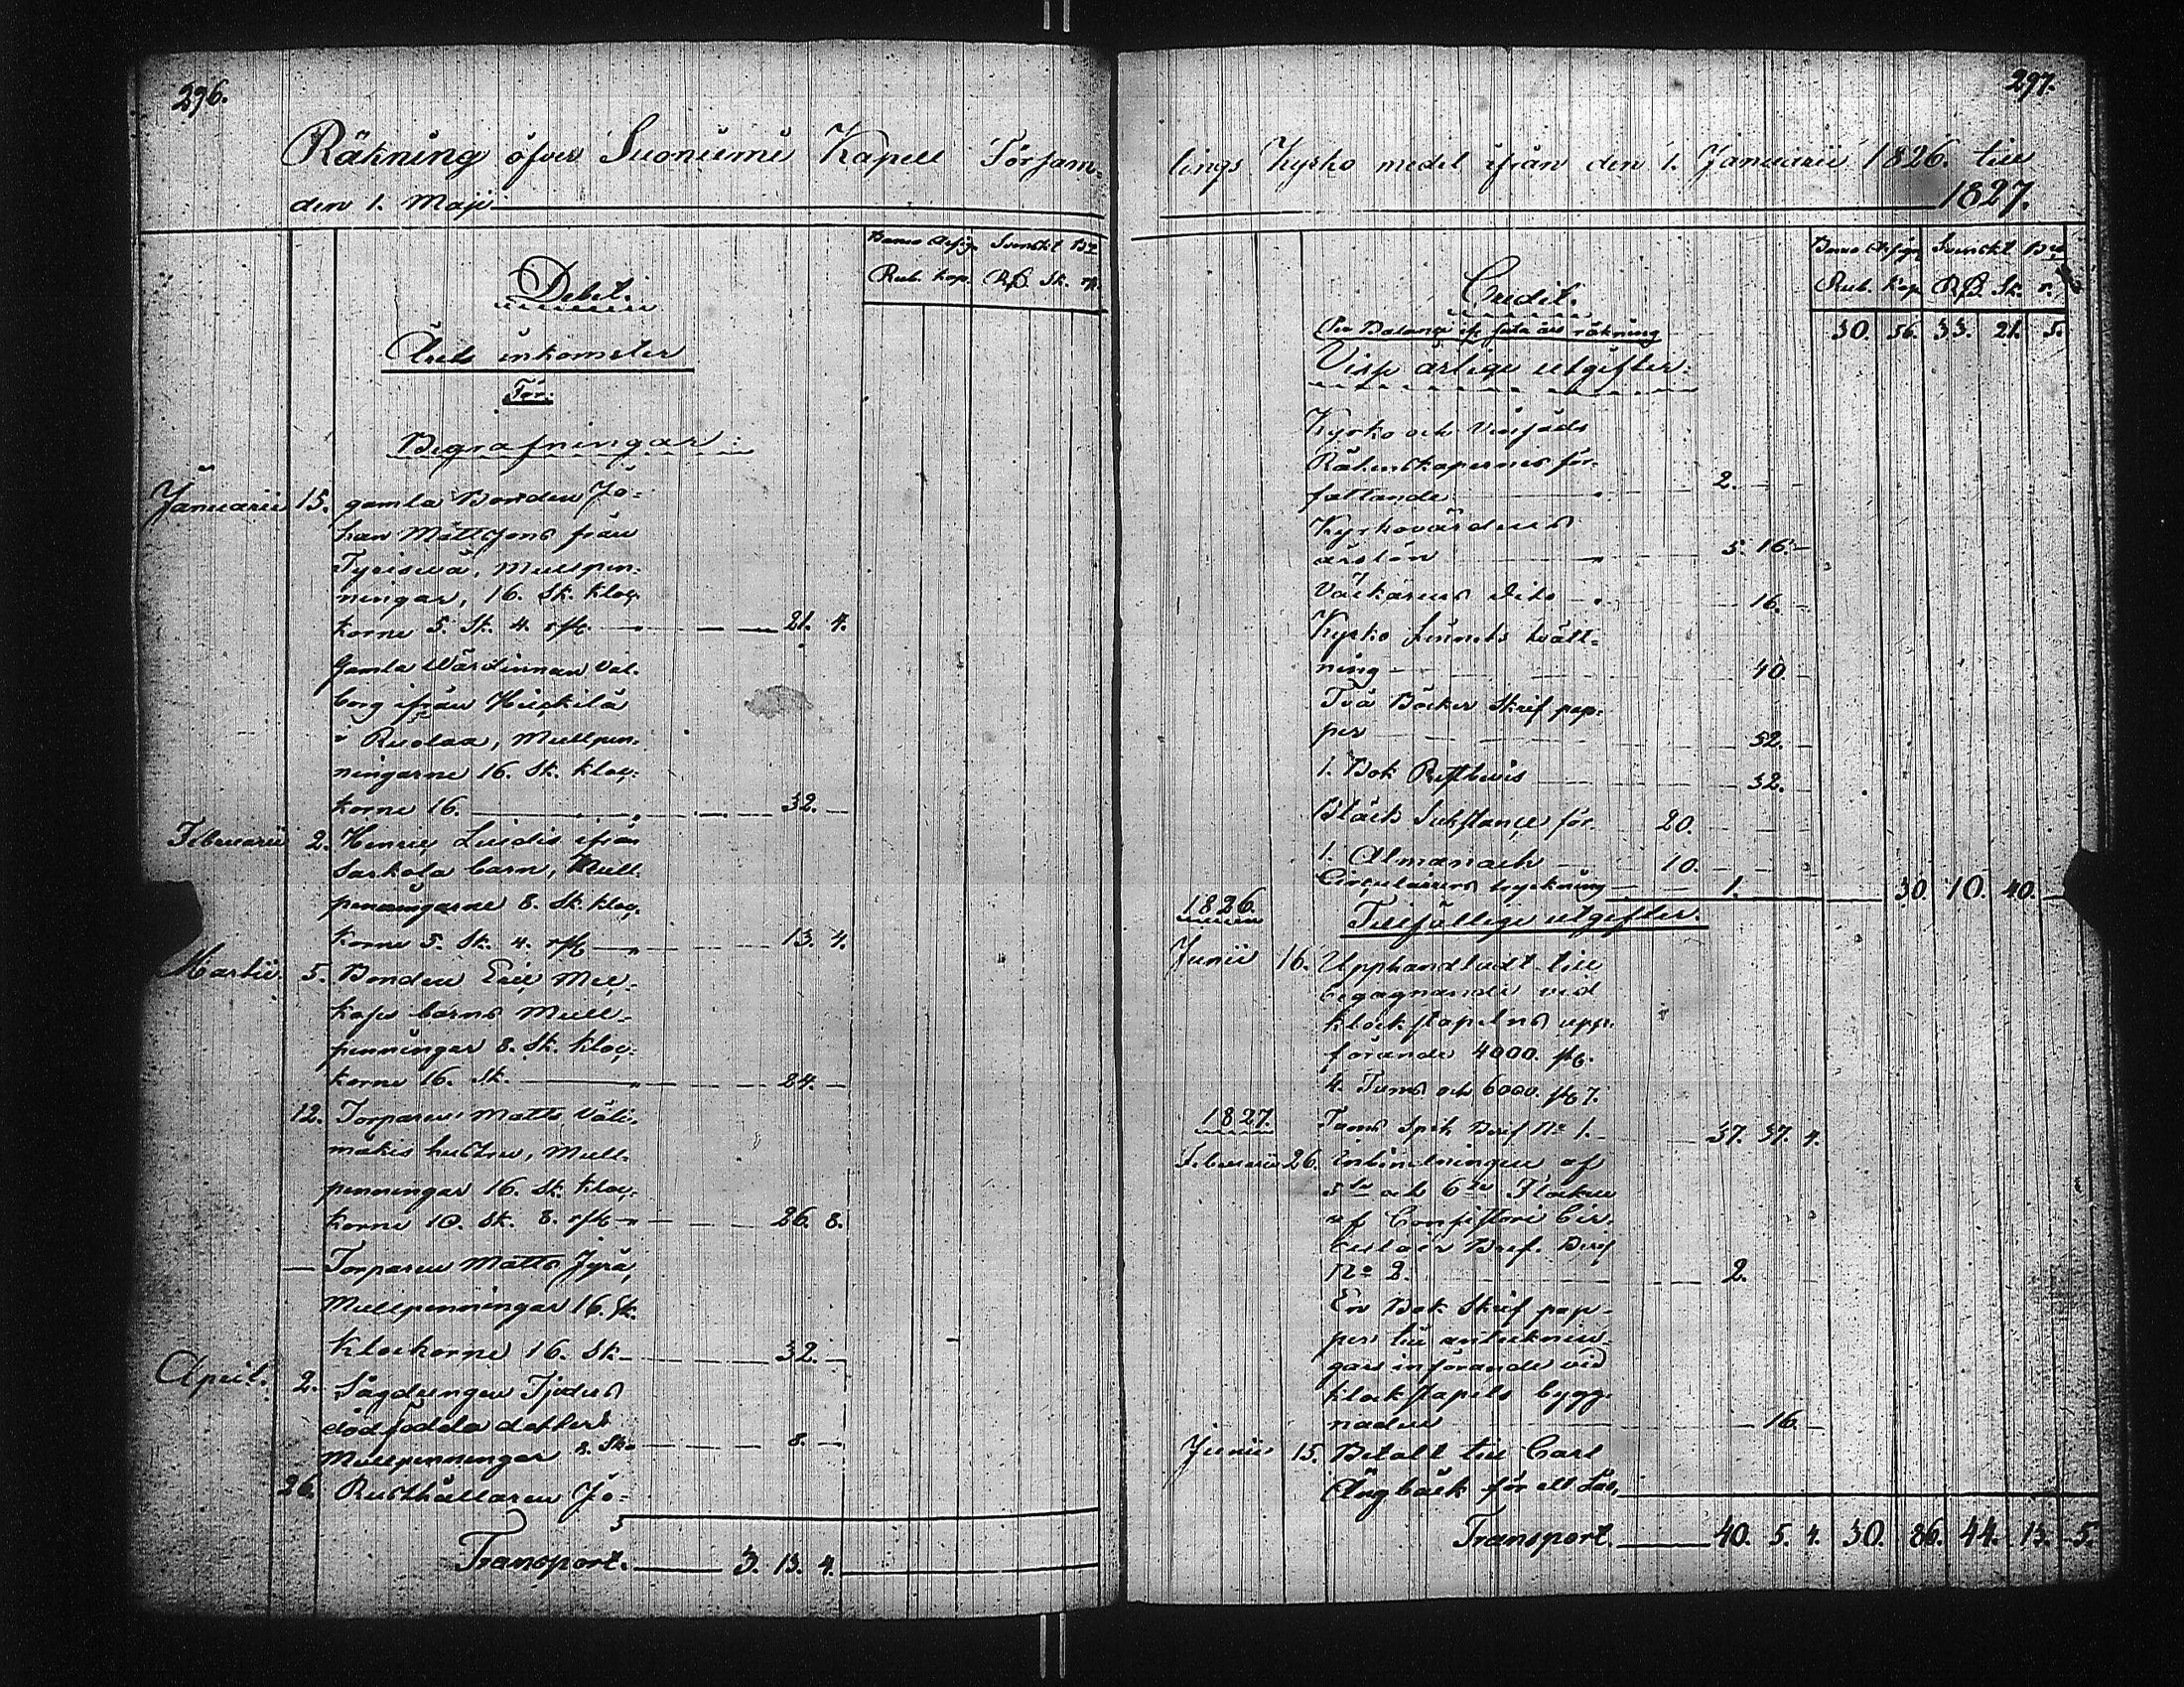 296.
Räkning öfver Suoniemi Kapell Församl
den 1. Maji
Banco Assign. Svenskt Bco
Rub. kop. R. Sk. r.
Debet.
Årets inkomster
För:
Begrafningar:
Januarii 15. gamla Bonden Jo=
han Mattssons från
Tyrisevä, Mullpen=
ningar, 16. Sk. kloc=
korne 5. Sk. 4. r. 21. 4.
Gamla Wärdinnan Val=
borg ifrån Heickilä
i Ruolaa, Mullpen=
ningarne 16. Sk. kloc=
korne 16. 32.
Februarii 2. Henric ifrån
Sarkola barn, Mull
penningarne 8. Sk. kloc=
korne 5. Sk. 4. r. 13. 4.
Martii. 5. Bonden Eric
barns Mull=
penningar 8. Sk. kloc=
korne 16. Sk. 24.
12. Torparen Matts Väli=
mäkis hustru, Mull=
penningar 16. Sk. kloc=
korne 10. Sk. 8. r. 26. 8.
Torparen Matts Jyrä,
Mullpenningar 16. Sk.
Klockorne 16. Sk. 32.
April. 2. Sågdrengen
dödfödda dotters
Mullpenningar 8. Sk. 8.
26. Rusthållaren Jo=
Transport. 3. 13. 4.
297.
lings Kyrko medel ifrån den 1. Januarii 1826. till
1827.
Banco Assign. Svenskt Bco
Rub. kop. R. Sk. r.
Credit.
Balance räkning 30. 56. 33. 21. 5.
Visse årlige utgifter:
Kyrko och
Räkenskapernes för=
fattande 2.
Kyrkovärdens
årslön 5. 16.
Väckarens dito 16.
Kyrko Linnets tvätt=
ning 40.
Två Böcker Skrif pap=
per 52.
1. Bok 32.
Bläck Substance för 20.
1. Almanach 10.
Circulairens tryckning 1. 30. 10. 40.
1826. Tillfällige utgifter.
Junii 16. Upphandladt till
begagnande vid
klockstapelns upp=
förande 4000. st.
4. Tums och 6000. st. 7.
1827. Tums Spik Verif No 1. 37. 37. 4.
Februarii 26. Inbindningen af
5te och 6te Flocken
af Consistorii Cir=
culair Bref. Verif
No 2. 2.
En Bok Skrif pap=
per till antecknin=
gars införande vid
klockstapels bygg=
naden 16.
Junii 15. Betalt till Carl
Ängbäck för ett Lås,
Transport. 40. 5. 4. 30. 86. 44. 13. 5.